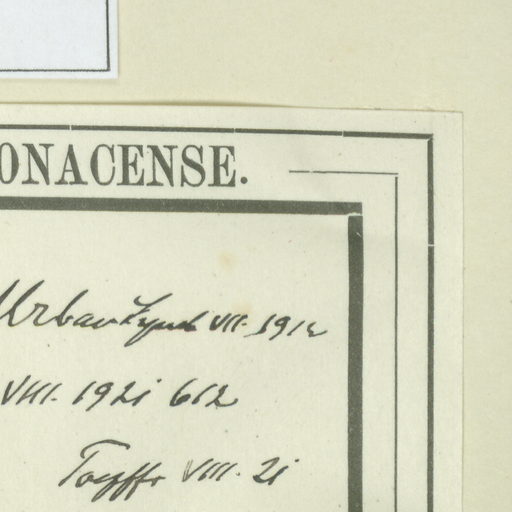 ONACENSE.
Urban Lynch VII. 1912
VIII. 1921 612
Toepffr VIII. 21